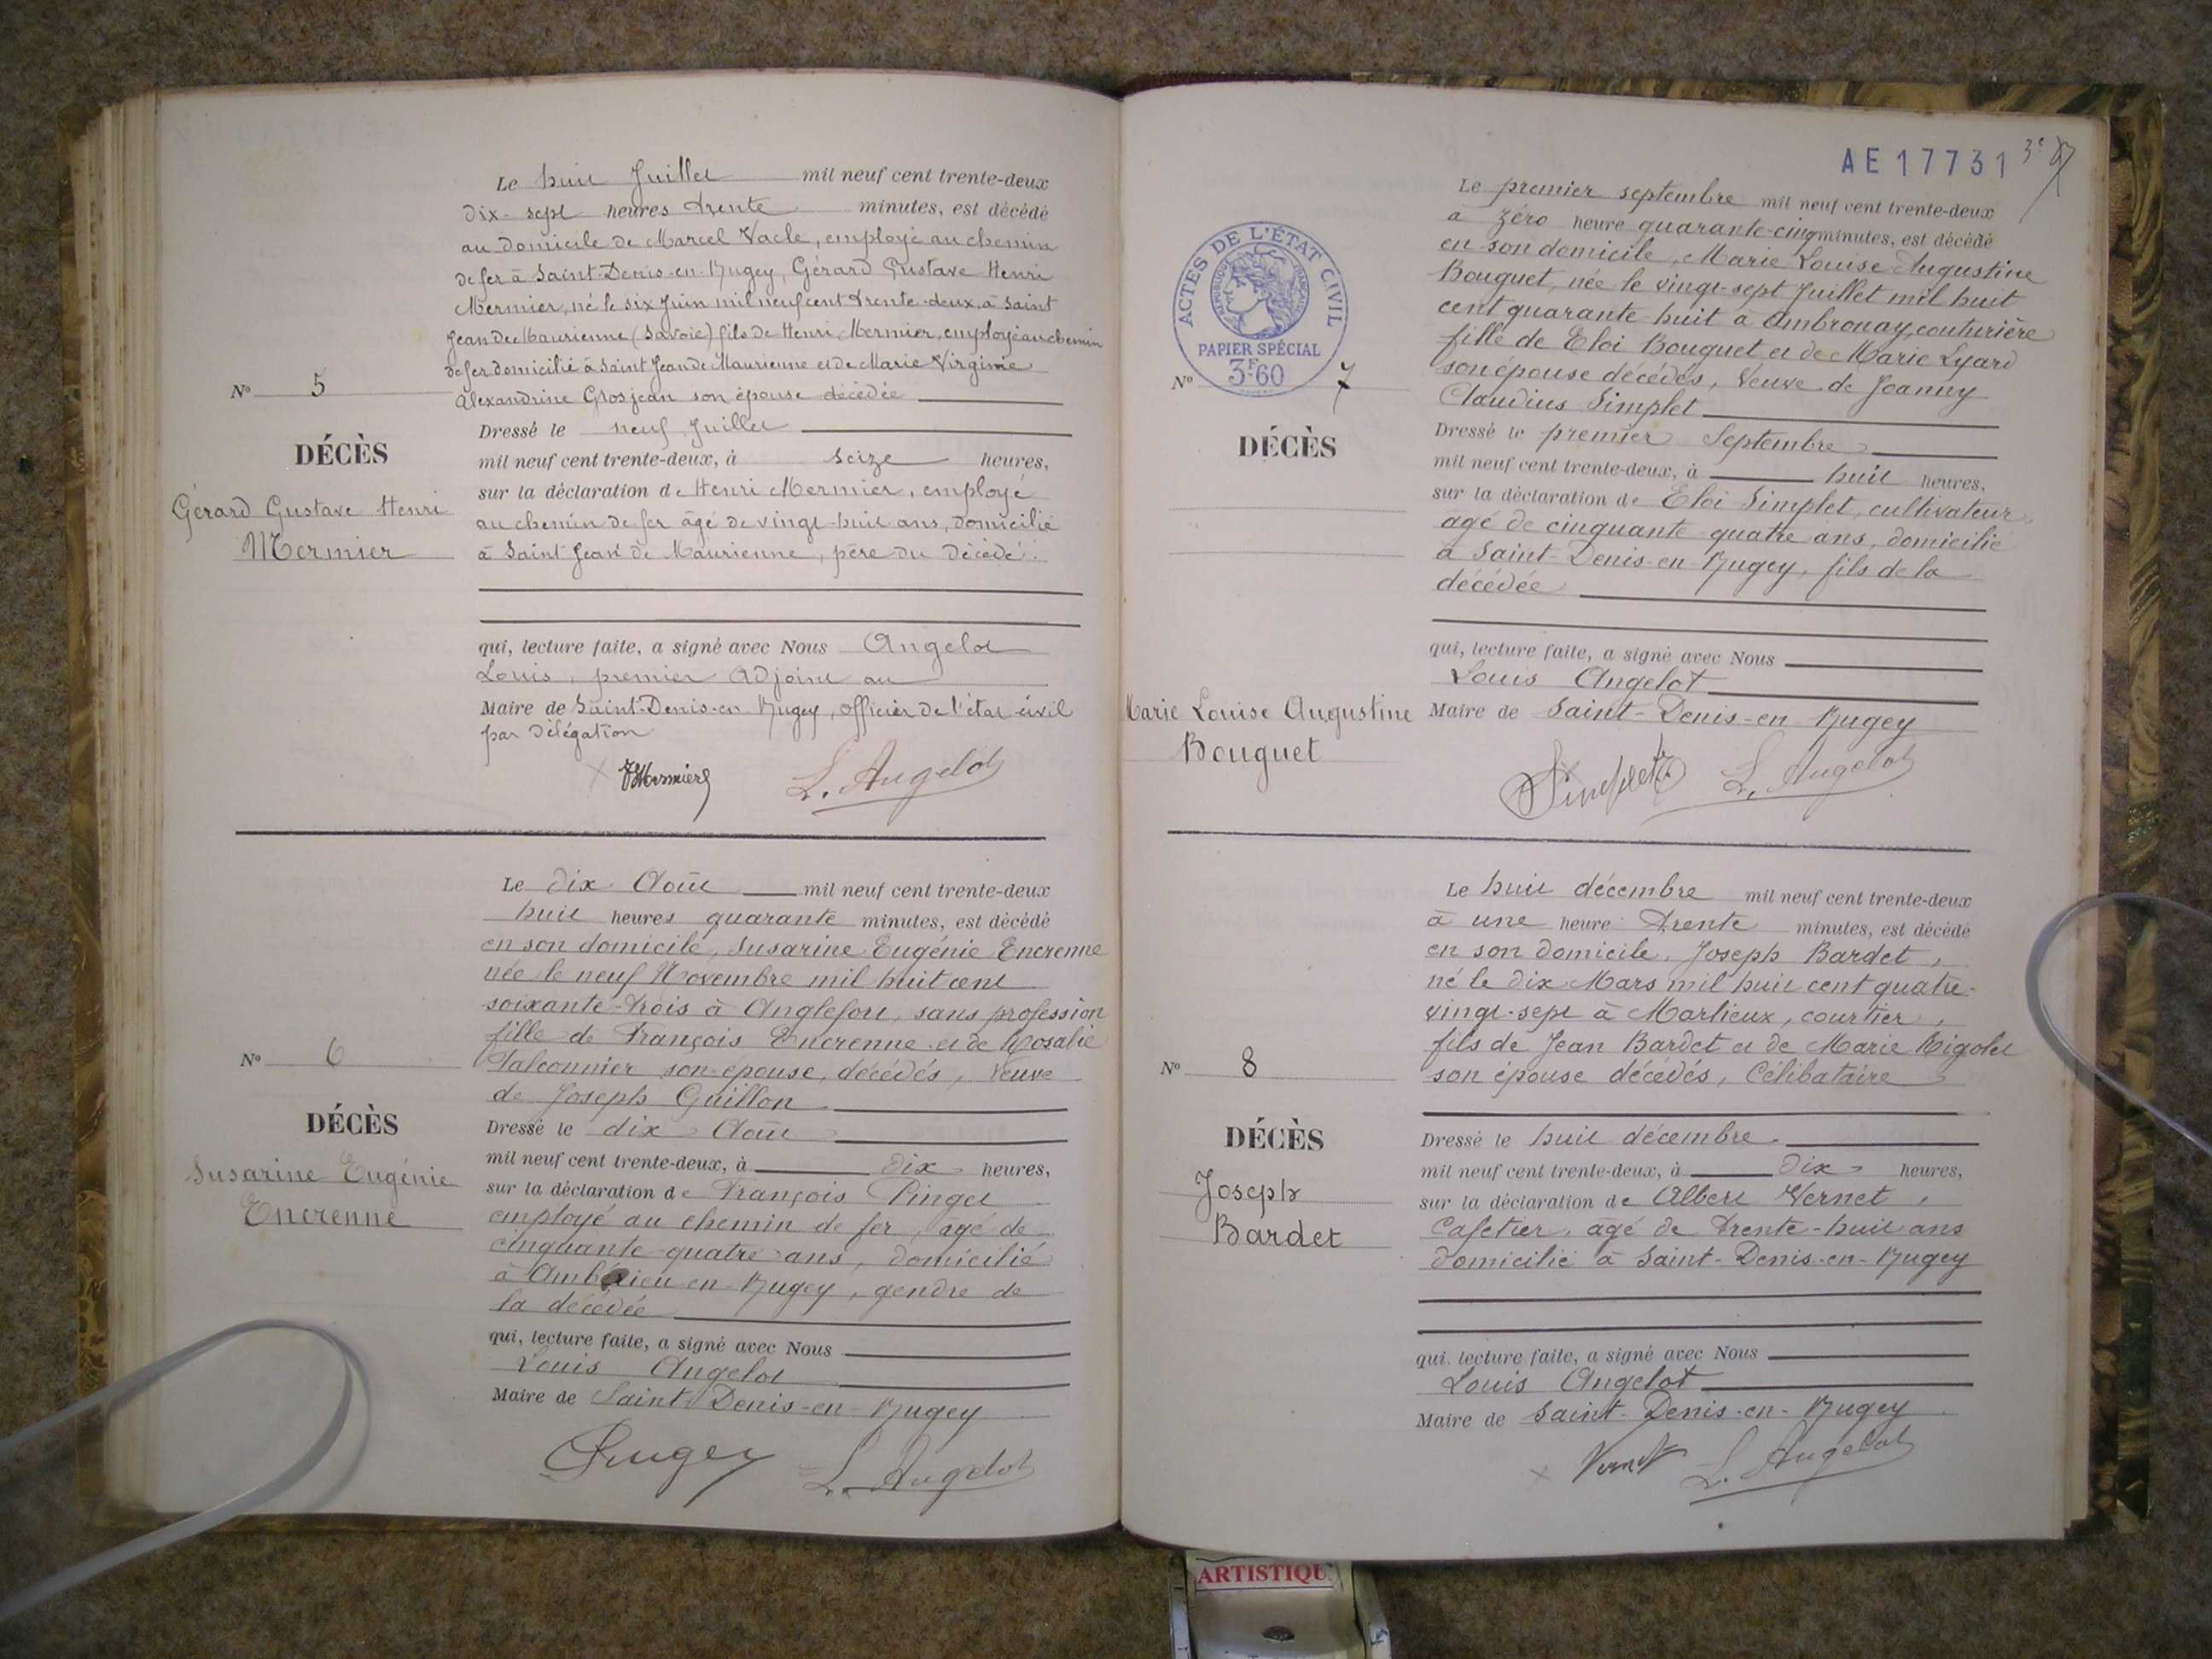 Le huit Juillet mil neuf cent trente-deux
dix-sept heures trente minutes, est décédé
au domicile de Marcel Vacle, employé au chemin
de fer à Saint-Denis-en-Bugey, Gérard Gustave Henri
Mermier, né le six Juin mil neuf cent trente-deux, à Saint
Jean de Maurienne (Savoie) fils de Henri Mermier, employé au chemin
de fer domicilié à Saint Jean de Maurienne et de Marie Virginie
Alexandrine Grosjean son épouse décédée
Nº 5
DÉCÈS
Gérard Gustave Henri
Mermier
Dressé le neuf Juillet
mil neuf cent trente-deux, à seize heures,
sur la déclaration de Henri Mermier, employé
au chemin de fer âgé de vingt-huit ans, domicilié
à Saint Jean de Maurienne, père du décédé.
qui, lecture faite, a signé avec Nous Angelot
Louis, premier Adjoint au
Maire de Saint-Denis-en Bugey, officier de l'état civil
par délégation
HMermier
L. Angelot
Le dix Août mil neuf cent trente-deux
huit heures quarante minutes, est décédé
en son domicile, Susarine Eugénie Encrenne
née le neuf Novembre mil huit cent
soixante-trois à Anglefort, sans profession
fille de François Encrenne et de Rosalie
Falconnier son épouse, décédés, veuve
de Joseph Guillon
Nº 6
DÉCÈS
Susarine Eugénie
Encrenne
Dressé le dix Août
mil neuf cent trente-deux, à dix heures,
sur la déclaration de François Pinget
employé au chemin de fer, âgé de
cinquante-quatre ans, domicilié
à Ambérieu-en-Bugey, gendre de
la décédée
qui, lecture faite, a signé avec Nous
Louis Angelot
Maire de Saint Denis-en-Bugey
L. Angelot
AE 17731
ACTES DE L'ÉTAT CIVIL
RÉPUBLIQUE FRANÇAISE
PAPIER SPÉCIAL
3F60
Le premier septembre mil neuf cent trente-deux
à zéro heure quarante-cinq minutes, est décédé
en son domicile, Marie Louise Augustine
Bouguet, née le vingt-sept Juillet mil huit
cent quarante-huit à Ambronay, couturière
fille de Eloi Bouguet et de Marie Lyard
son épouse décédés, Veuve de Joanny
Claudius Simplet
Nº 7
DÉCÈS
Marie Louise Augustine
Bouguet
Dressé le premier Septembre
mil neuf cent trente-deux, à huit heures,
sur la déclaration de Eloi Simplet, cultivateur,
âgé de cinquante-quatre ans, domicilié
à Saint-Denis-en-Bugey, fils de la
décédée
qui, lecture faite, a signé avec Nous
Louis Angelot
Maire de Saint-Denis-en Bugey
Simplet
L. Angelot
Le huit décembre mil neuf cent trente-deux
à une heure trente minutes, est décédé
en son domicile, Joseph Bardet,
né le dix Mars mil huit cent quatre-
vingt-sept à Marlieux, courtier,
fils de Jean Bardet et de Marie Rigolet
son épouse décédés, Célibataire
Nº 8
DÉCÈS
Joseph
Bardet
Dressé le huit décembre.
mil neuf cent trente-deux, à dix heures,
sur la déclaration de Albert Vernet,
Cafetier, âgé de trente-huit ans
domicilié à Saint-Denis-en-Bugey
qui, lecture faite, a signé avec Nous
Louis Angelot
Maire de Saint-Denis-en-Bugey
Vernet
L. Angelot
ARTISTIQU